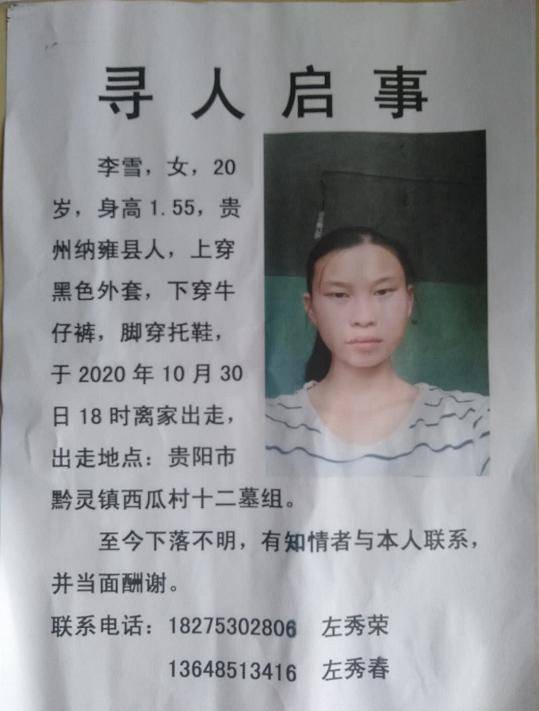 寻人启事
李雪，女，20
岁，身高1.55，贵
州纳雍县人，上穿
黑色外套，下穿牛
仔裤，脚穿托鞋，
于2020年10月30
日18时离家出走，
出走地点：贵阳市
黔灵镇西瓜村十二墓组。
至今下落不明，有知情者与本人联系，
并当面酬谢。
联系电话：18275302806 左秀荣
13648513416 左秀春